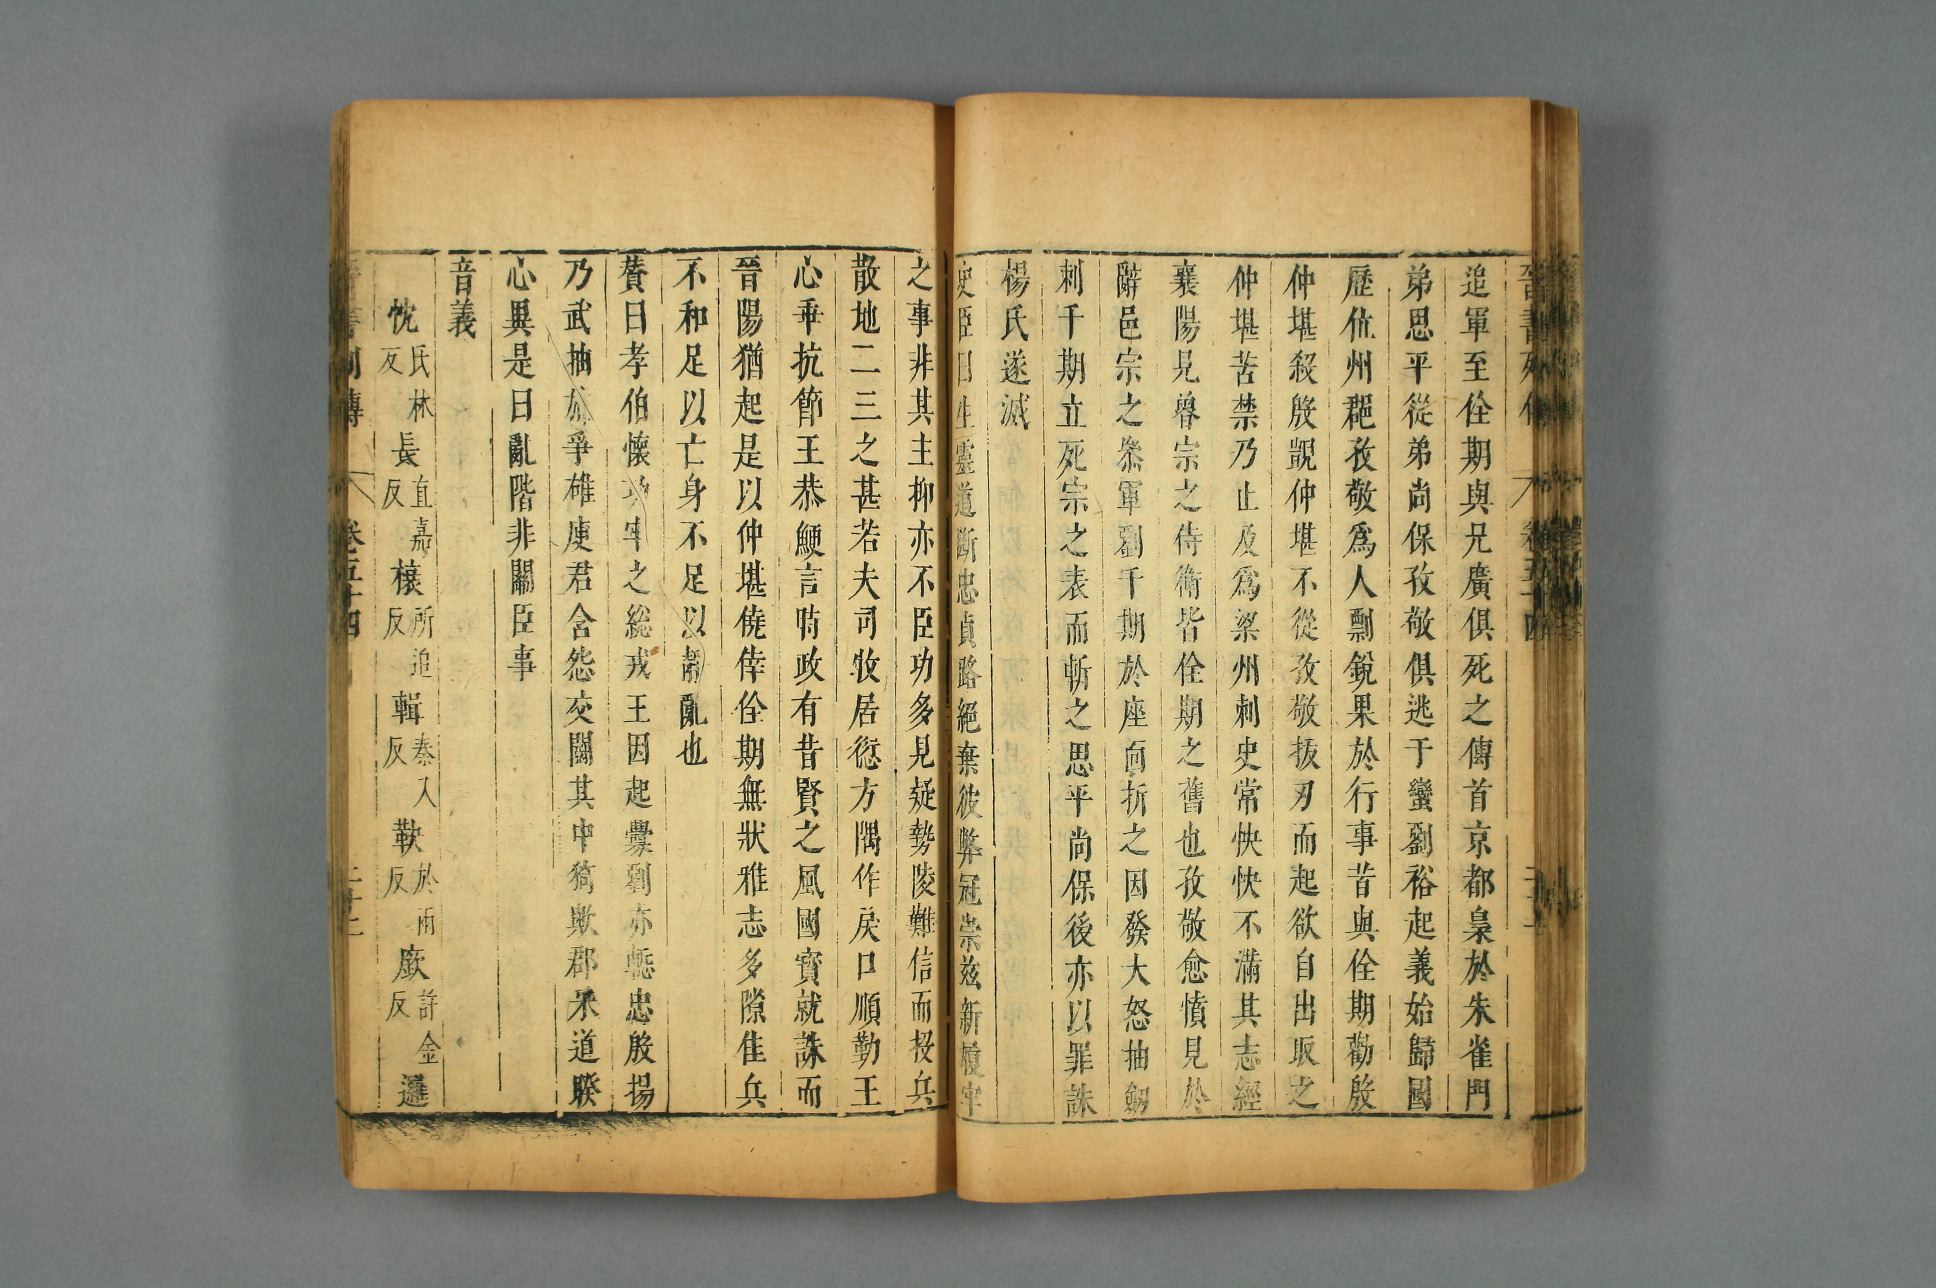 晉書列傳 卷五十四
追軍至佺期與兄廣俱死之傳首京都梟於朱雀門
弟思平從弟尚保孜敬俱逃于蠻劉裕起義始歸國
歷位州郡孜敬爲人剽銳果於行事昔與佺期勸殷
仲堪殺殷覬仲堪不從孜敬拔刃而起欲自出取之
仲堪苦禁乃止及爲梁州刺史常怏怏不滿其志經
襄陽見魯宗之侍衛皆佺期之舊也孜敬愈憤見於
辭邑宗之叅軍劉千期於座面折之因發大怒抽劒
刺千期立死宗之表而斬之思平尚保後亦以罪誅
楊氏遂滅
史臣曰生靈道斷忠貞路絕棄彼弊冠崇兹新履牢
之事非其主抑亦不臣功多見疑勢陵難信而投兵
散地二三之甚若夫司牧居愆方隅作戾口順勤王
心乖抗節王恭鯁言時政有昔賢之風國寶就誅而
晉陽猶起是以仲堪僥倖佺期無狀雅志多隙佳兵
不和足以亡身不足以靜亂也
贊曰孝伯懷功牢之總戎王因起釁劉亦慙忠殷楊
乃武抽旆爭雄庾君含怨交鬪其中猗歟郡釆道睽
心異是曰亂階非關臣事
音義
忱氏林反 長直嘉反 榱所追反 輯秦入反 鞅於兩反 廞許金反 邏
晉書列傳 卷五十四